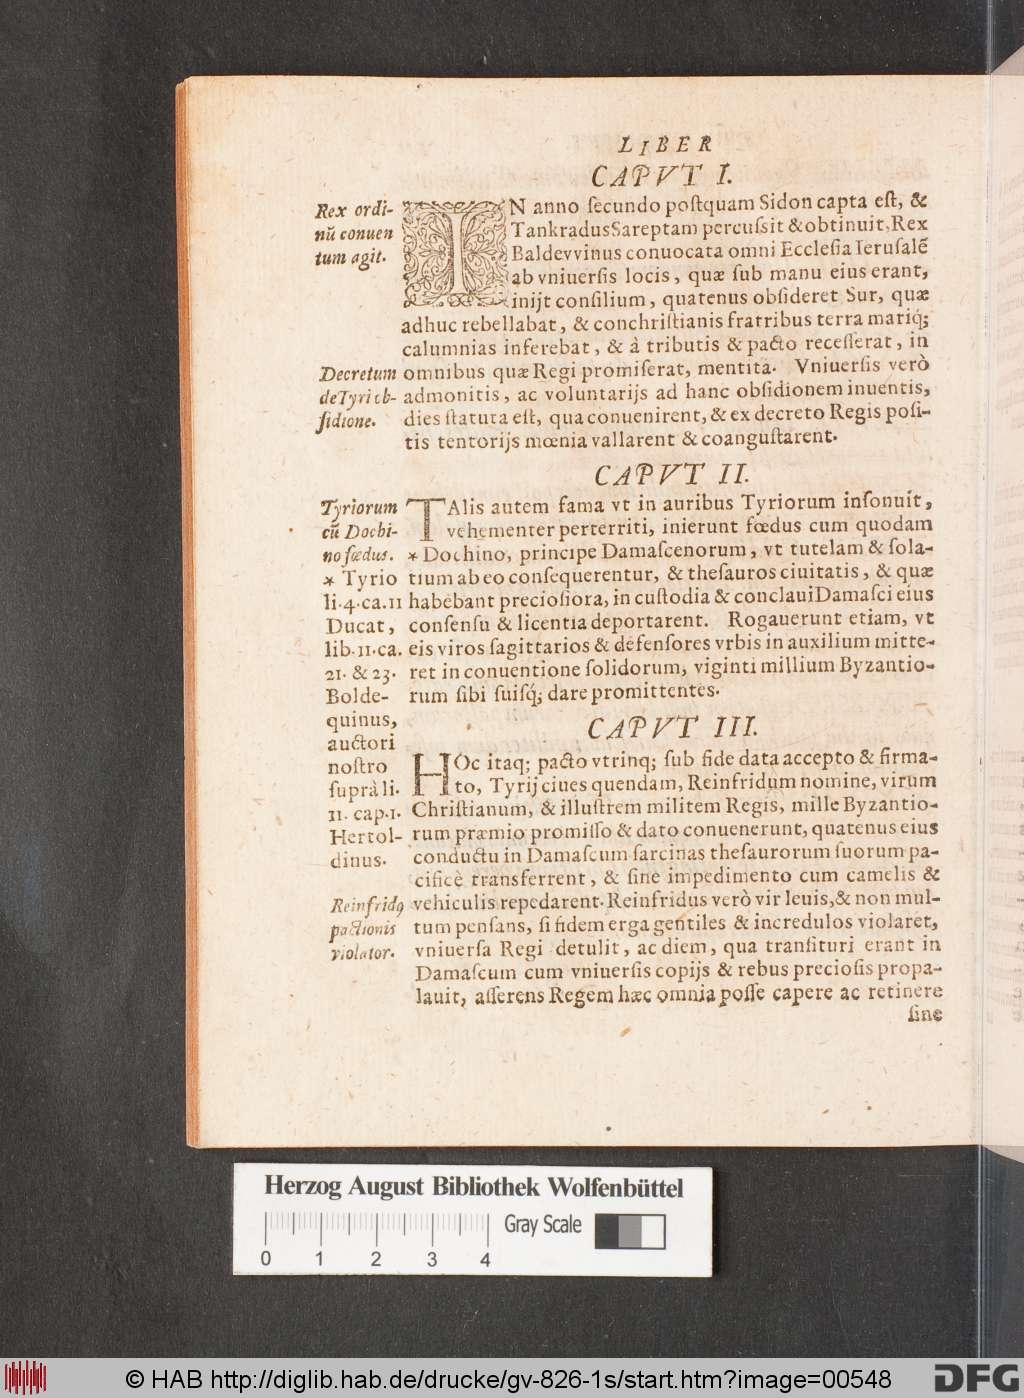 LIBER
CAPVT I.
Rex ordi-
nū conuen
tum agit.
IN anno ſecundo poſtquam Sidon capta eſt, &
Tankradus Sareptam percuſsit & obtinuit, Rex
Baldevvinus conuocata omni Eccleſia Ieruſalē
ab vniuerſis locis, quæ ſub manu eius erant,
inijt conſilium, quatenus obſideret Sur, quæ
adhuc rebellabat, & conchriſtianis fratribus terra mariq́;
calumnias inferebat, & à tributis & pacto receſſerat, in
Decretum
de Tyri ob-
ſidione.
omnibus quæ Regi promiſerat, mentita. Vniuerſis verò
admonitis, ac voluntarijs ad hanc obſidionem inuentis,
dies ſtatuta eſt, qua conuenirent, & ex decreto Regis poſi-
tis tentorijs mœnia vallarent & coanguſtarent.
CAPVT II.
Tyriorum
cū Dochi-
no fœdus.
* Tyrio
li.4.ca.11
Ducat,
lib.11.ca.
21. & 23.
Bolde-
quinus,
auctori
noſtro
ſuprà li.
11. cap.1.
Hertol-
dinus.
TAlis autem fama vt in auribus Tyriorum inſonuit,
vehementer perterriti, inierunt fœdus cum quodam
* Dochino, principe Damaſcenorum, vt tutelam & ſola-
tium ab eo conſequerentur, & theſauros ciuitatis, & quæ
habebant precioſiora, in cuſtodia & conclaui Damaſci eius
conſenſu & licentia deportarent. Rogauerunt etiam, vt
eis viros ſagittarios & defenſores vrbis in auxilium mitte-
ret in conuentione ſolidorum, viginti millium Byzantio-
rum ſibi ſuiſq́; dare promittentes.
CAPVT III.
HOc itaq; pacto vtrinq; ſub fide data accepto & firma-
to, Tyrij ciues quendam, Reinfridum nomine, virum
Chriſtianum, & illuſtrem militem Regis, mille Byzantio-
rum præmio promiſſo & dato conuenerunt, quatenus eius
conductu in Damaſcum ſarcinas theſaurorum ſuorum pa-
cificè transferrent, & ſine impedimento cum camelis &
Reinfridꝰ
pactionis
violator.
vehiculis repedarent. Reinfridus verò vir leuis, & non mul-
tum penſans, ſi fidem erga gentiles & incredulos violaret,
vniuerſa Regi detulit, ac diem, qua tranſituri erant in
Damaſcum cum vniuerſis copijs & rebus precioſis propa-
lauit, aſſerens Regem hæc omnia poſſe capere ac retinere
ſine
Herzog August Bibliothek Wolfenbüttel
Gray Scale
0 1 2 3 4
© HAB http://diglib.hab.de/drucke/gv-826-1s/start.htm?image=00548
DFG